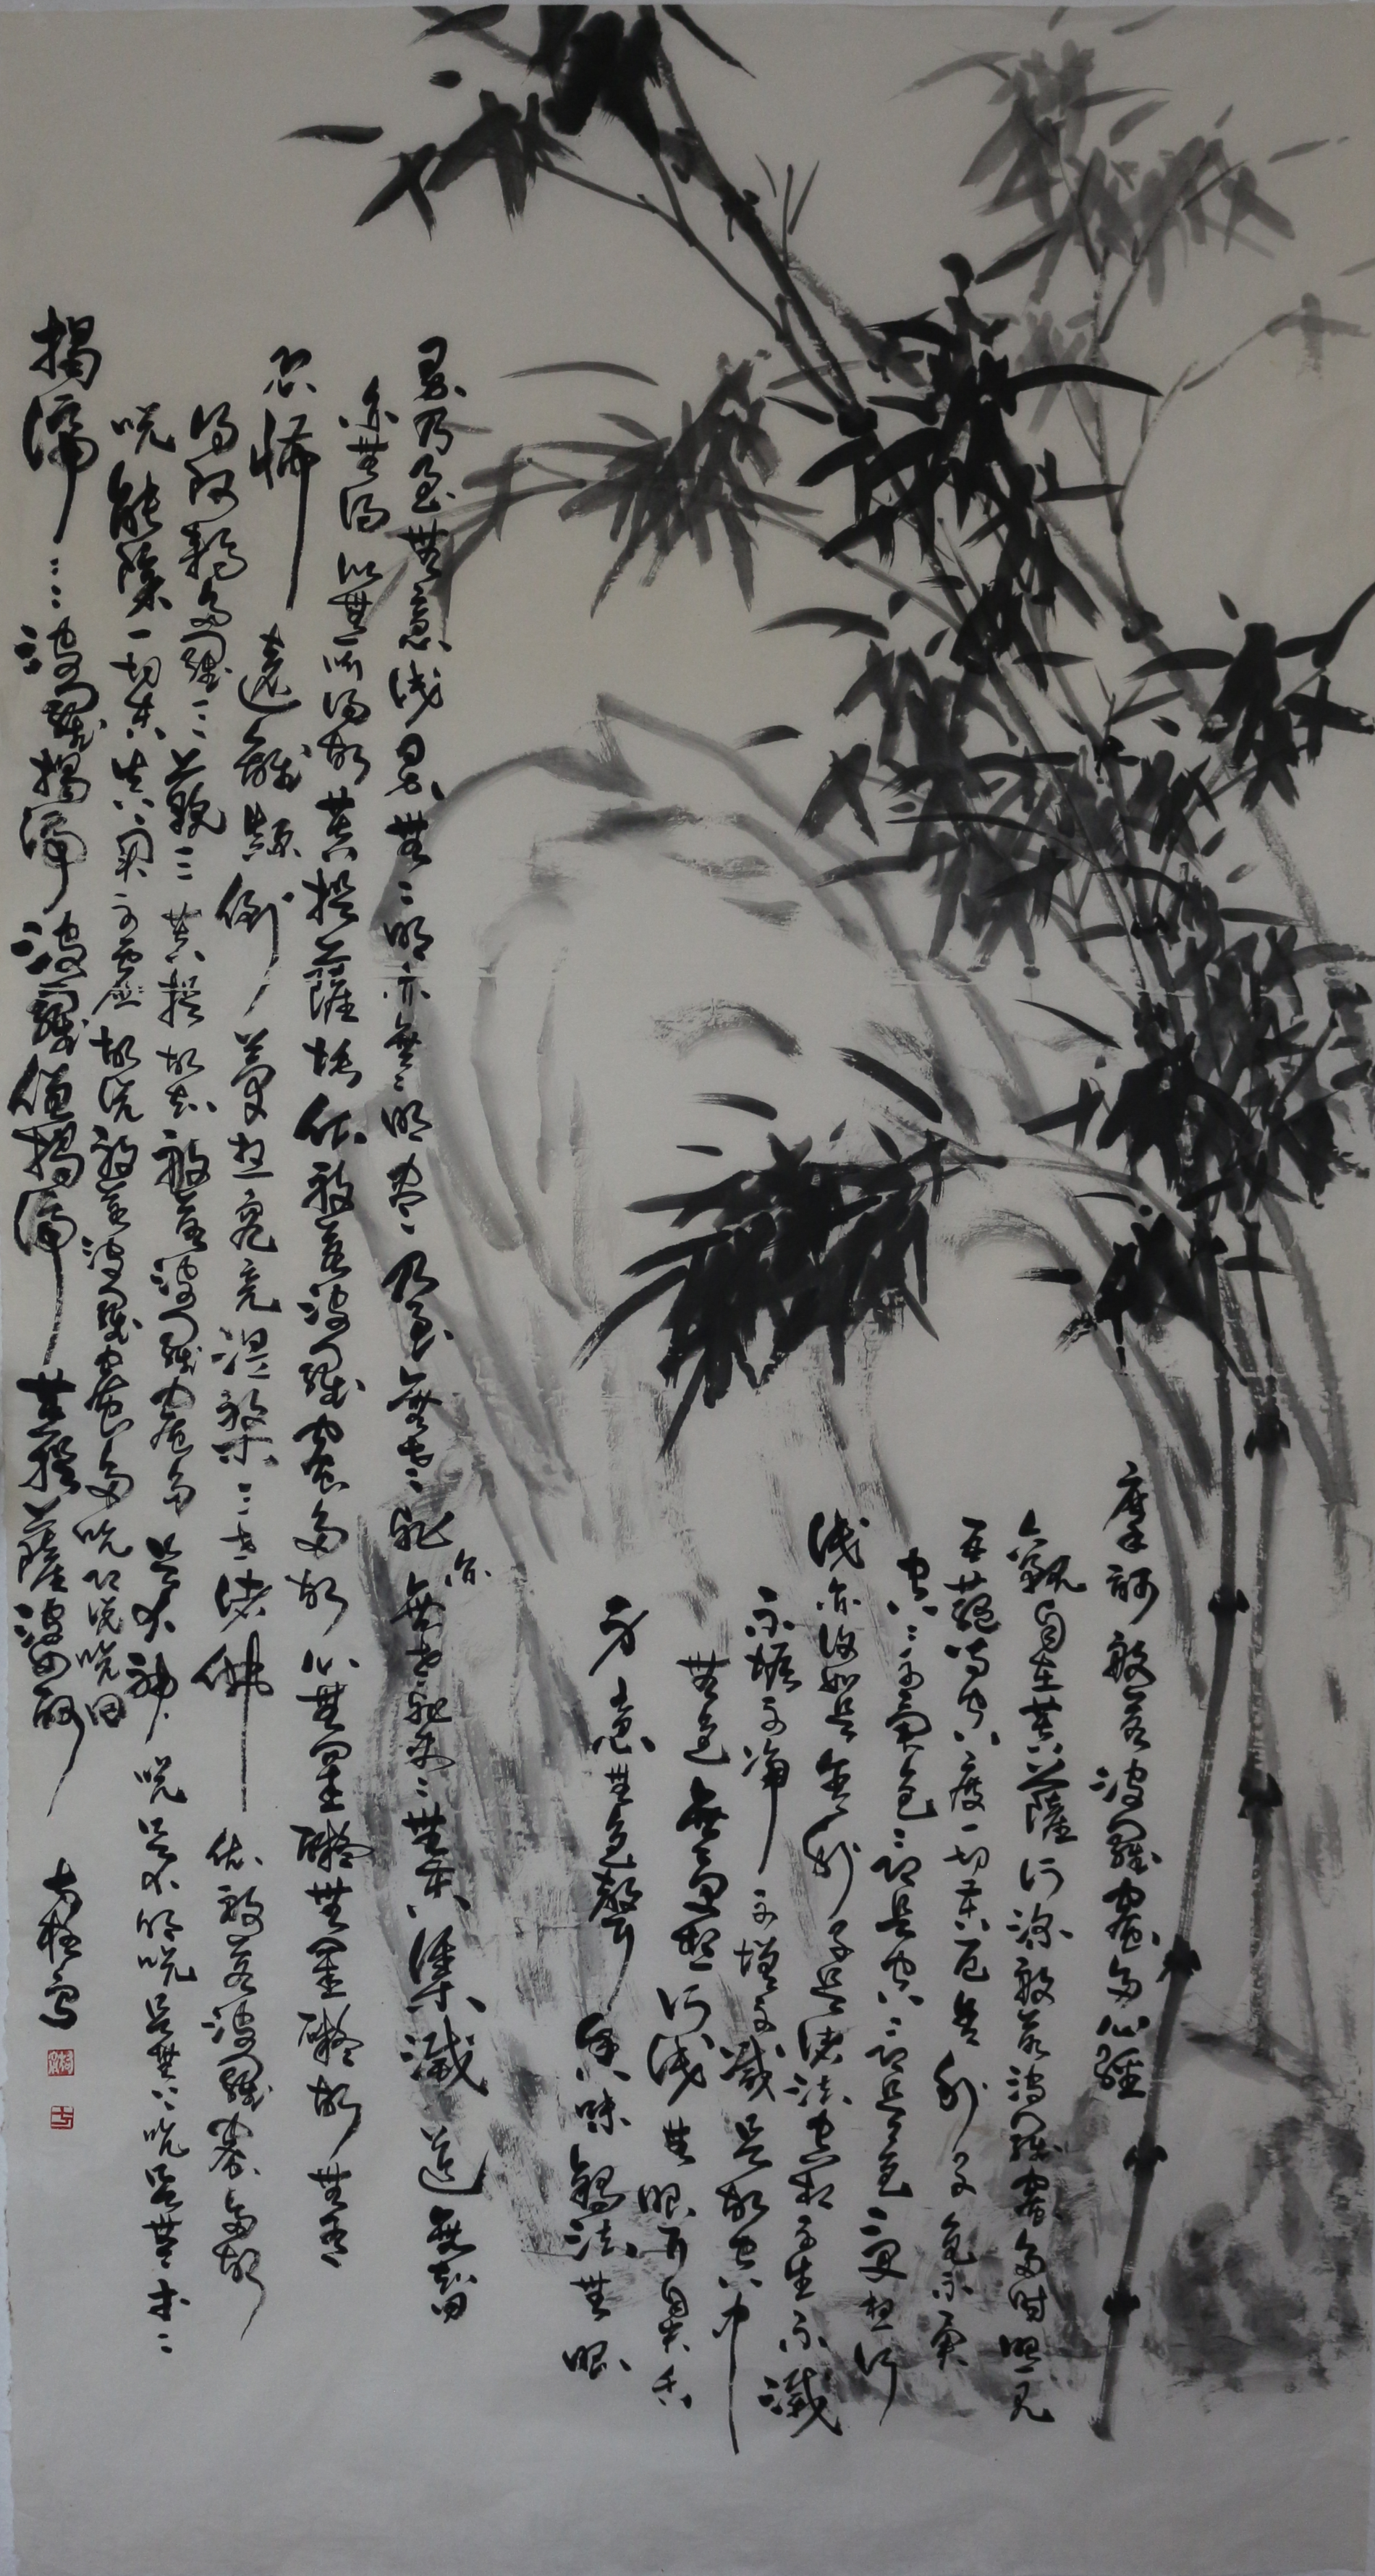 摩訶般若波羅蜜多心經
觀自在菩薩行深般若波羅蜜多時照見
五蘊皆空度一切苦厄舍利子色不異
空空不異色色即是空空即是色受想行
識亦復如是舍利子是諸法空相不生不滅
不垢不淨不增不減是故空中
無色無受想行識無眼耳鼻舌
身意無色聲香味觸法無眼
界乃至無意識界無無明亦無無明盡乃至無老死亦無老死盡無苦集滅道無智
亦無得以無所得故菩提薩埵依般若波羅蜜多故心無罣礙無罣礙故無有
恐怖遠離顛倒夢想究竟涅槃三世諸佛依般若波羅蜜多故
得阿耨多羅三藐三菩提故知般若波羅蜜多是大神咒是大明咒是無上咒是無等等
咒能除一切苦真實不虛故說般若波羅蜜多咒即說咒曰
揭諦揭諦波羅揭諦波羅僧揭諦菩提薩婆訶